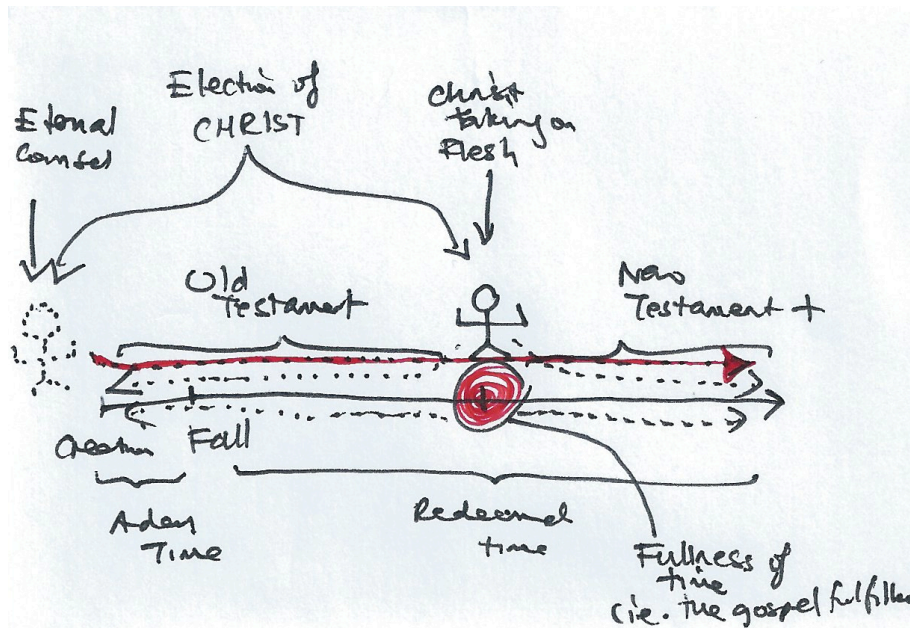 Eternal
Counsel
Election of
CHRIST
Christ
taking on
Flesh
Old
Testament
New
Testament +
Creation
Fall
Time
Redeemed
time
Fullness of
time
(ie. the gospel fulfilled